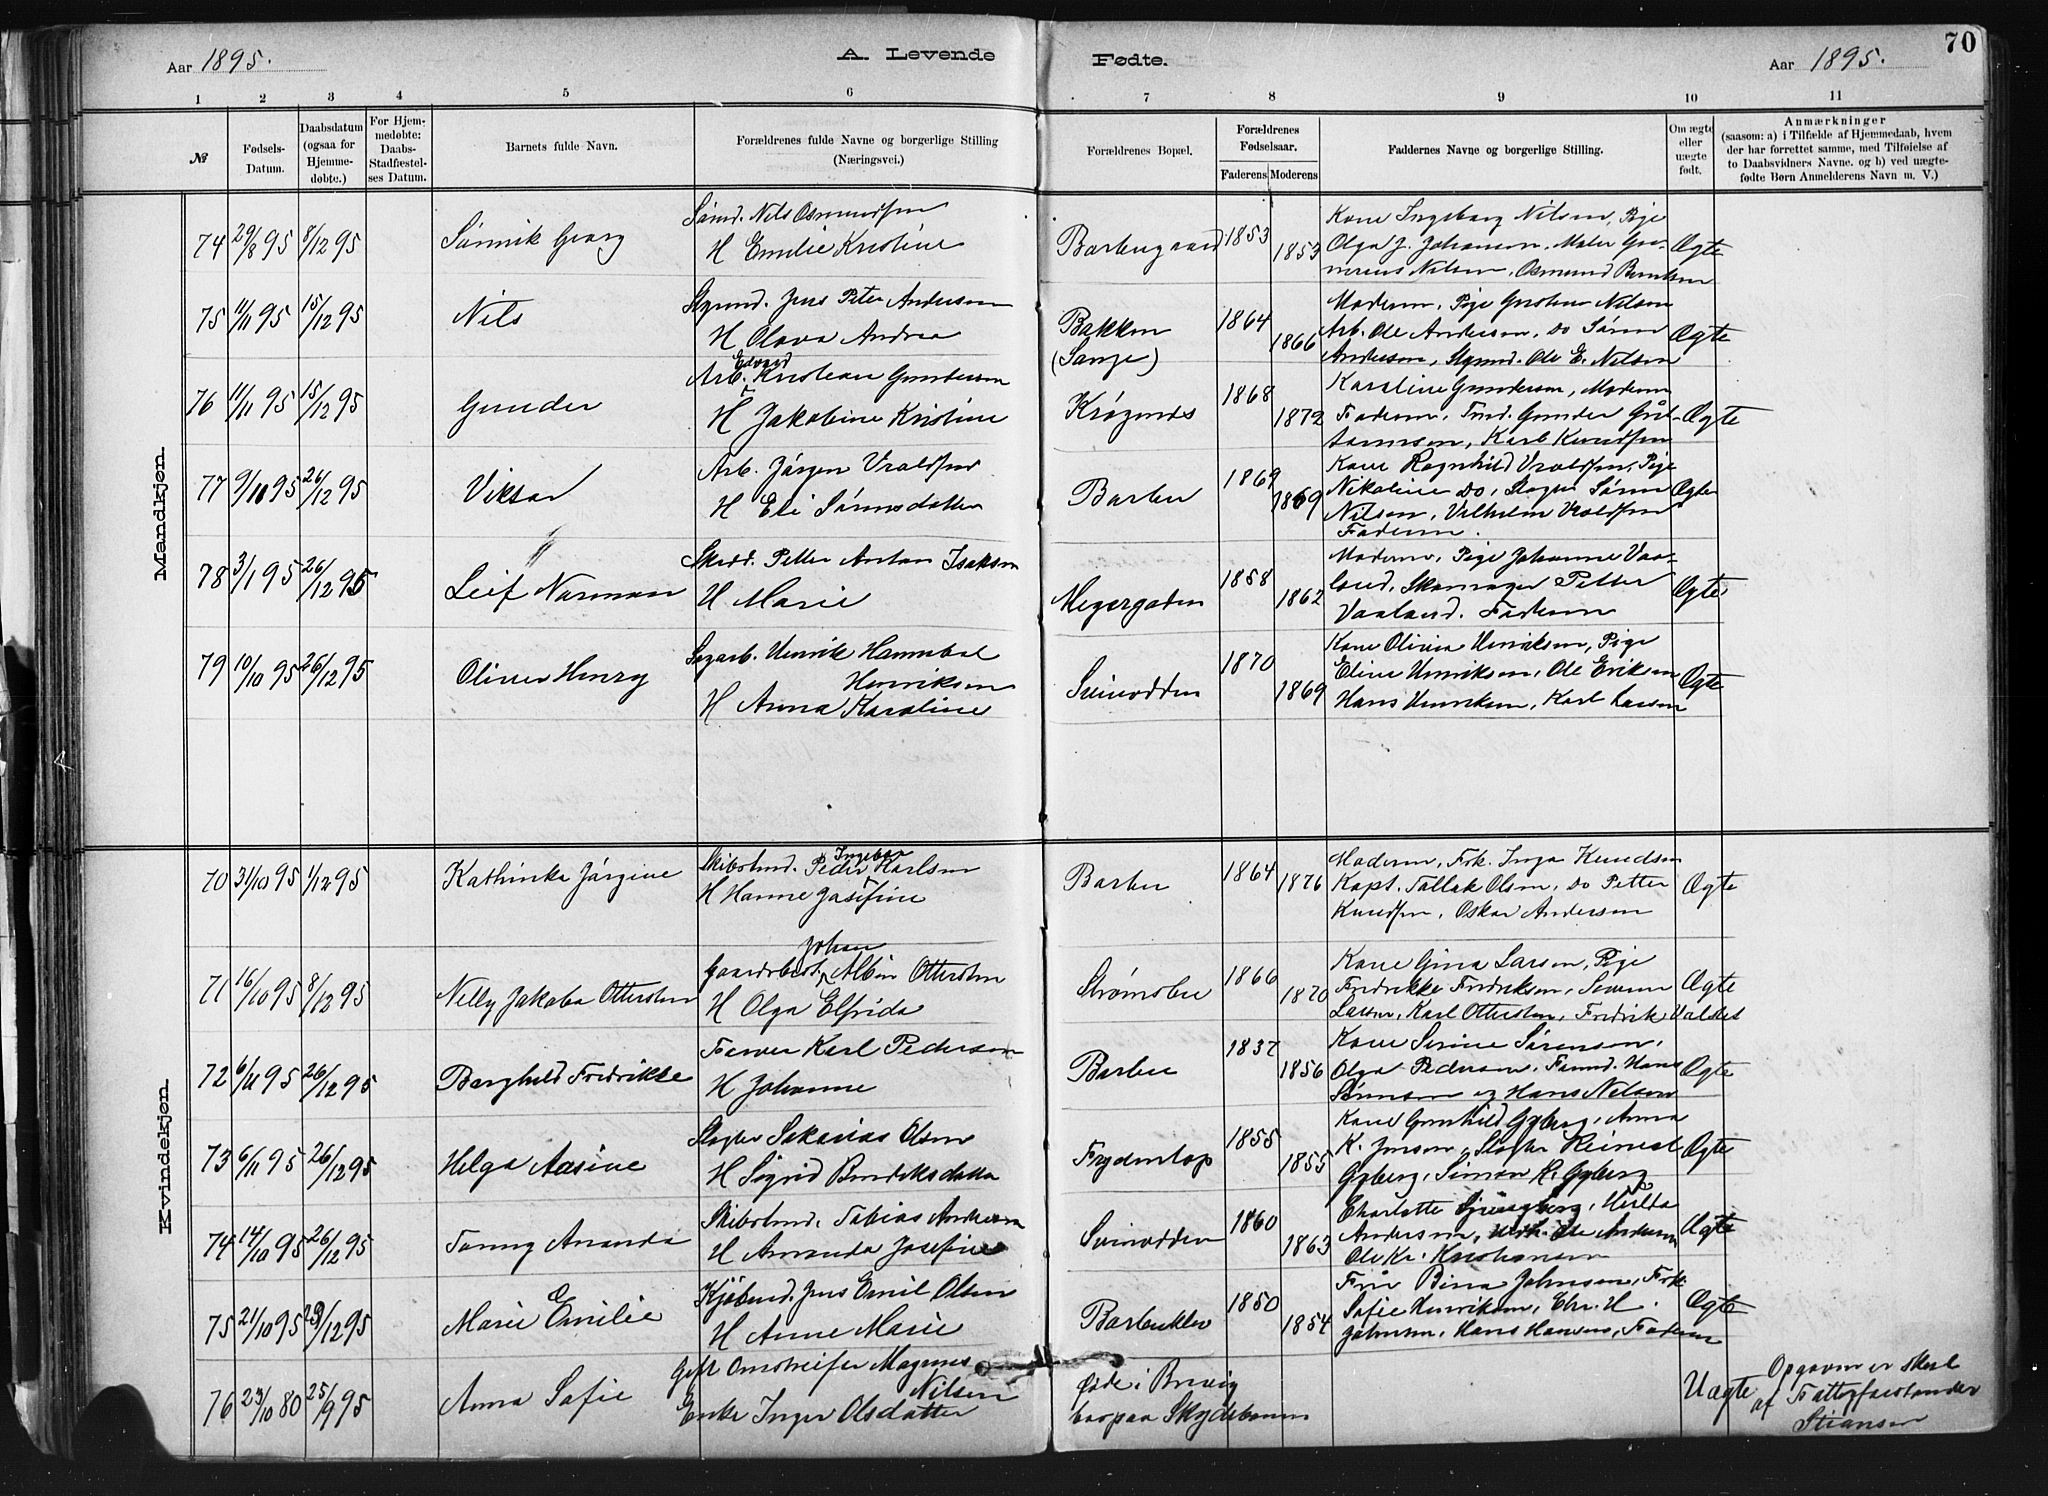 70
Aar 1895.
A. Levende Fødte.
Aar 1895.
1 2 3 4 5 6 7 8 9 10 11
№
Fødsels-Datum.
Daabsdatum (ogsaa for Hjemme-døbte.)
For Hjem-medøbte: Daabs-Stadfæstel-ses Datum.
Barnets fulde Navn.
Forældrenes fulde Navne og borgerlige Stilling (Næringsvei.)
Forældrenes Bopæl.
Forældrenes Fødselsaar.
Faderens Moderens
Faddernes Navne og borgerlige Stilling.
Om ægte eller uægte født.
Anmærkninger
(saasom: a) i Tilfælde af Hjemmedaab, hvem
der har forrettet samme, med Tilføielse af
to Daabsvidners Navne. og b) ved uægte-
fødte Børn Anmelderens Navn m. V.)
Mandkjøn.
74 29/8 95 8/12 95 Sønnik Georg
Sømd. Nils Osmundsen
H Emilie Kristine
Barbugaard 1853 1853
Kone Ingeborg Nilsen, Pige
Olga J. Johansen, Maler
Nilsen, Osmund
Ægte
75 11/11 95 15/12 95 Nils
Styrmd. Jens Peter Anderson
H Olava Andrea
Bakken
(Songe)
1864 1866
Moderen, Pige Nilsen
Arb. Ole Andersen, do Søren
Andersen, Styrmd. Ole E. Nilsen
Ægte
76 11/11 95 15/12 95 Gunder
Arb. Edvard Kristian Gundersen
H Jakobine Kristine
Krøgenes 1868 1872
Karoline Gundersen, Moderen
Faderen, Gunder
Karl Knudsen
Ægte
77 9/10 95 26/12 95 Viktor
Arb. Jörgen Vraldsen
H Eli Sørensdatter
Barbu 1869 1869
Kone Ragnhild Vraldsen, Pige
Nikoline do, Søren
Nilsen, Vilhelm Vraldsen
Faderen.
Ægte
78 3/1 95 26/12 95 Leif Norman
Skrdd. Petter Anton Isaksen
H Marie
Meyergaden 1858 1862
Moderen, Pige Johanne Vaa-
land, Skomager Petter
Vaaland. Faderen
Ægte
79 10/10 95 26/12 95 Oliver Henry
Sagarb. Henrik Hannibal
Henriksen
H Anna Karoline
Svinodden 1870 1869
Kone Olivia Henriksen, Pige
Eline Henriksen, Ole Eriksen
Hans Henriksen, Karl Larsen
Ægte
Kvindekjøn.
70 31/10 95 1/12 95 Kathinka Jörgine
Skibstmd. Peder Karlsen
H Hanne Josefine
Barbu 1864 1876
Moderen, Frk. Inga Knudsen
Kapt. Tallak Olsen, do Petter
Knudsen, Oskar Andersen
Ægte
71 16/10 95 8/12 95 Nelly Jakoba Ottersten
Johan
Gaardsbest. Albin Ottersten
H Olga Elfrida
Strømsbu 1866 1870
Kone Gina Larsen, Pige
Fredrikke Fredriksen, Severin
Larsen, Karl Ottersten, Fredrik Valstet
Ægte
72 6/11 95 26/12 95 Borghild Fredrikke
Farver Karl Pedersen
H Johanne
Barbu 1837 1856
Kone Serine Sørenson,
Olga Pedersen, Hans
Sørenson og Hans Nilsen
Ægte
73 6/11 95 26/12 95 Helga Aasine
Slagter Sakarias Olsen
H Sigrid Bendiksdatter
Frydentop 1855 1855
Kone Gunhild Gyberg, Anna
K. Jensen, Slagter
Gyberg, Simon H. Gyberg
Ægte
74 14/10 95 26/12 95 Fanny Ananda
Skibstmd. Tobias Andersen
H Amanda Josefine
Svinodden 1860 1863
Charlotte Hilda
Andersen, Ole Andersen
Ole Kr. Kristiansen
Ægte
75 21/10 95 29/12 95 Marie Emilie
Kjöbmd. Jens Emil Olsen
H Anne Marie
Barbuklev 1850 1854
Fru Bina Johnsen, Frk.
Sofie Henriksen, Chr. H.
Johnsen, Hans Hansen, Faderen
Ægte
76 23/10 80 25/9 95 Anna Sofie
Gift Omstreifer Magnus
Nilsen
Enke Inger Olsdatter
født i Brevig
boepaa
Uægte
Opgaven er skeet
af Fattigforstander
Stiansen